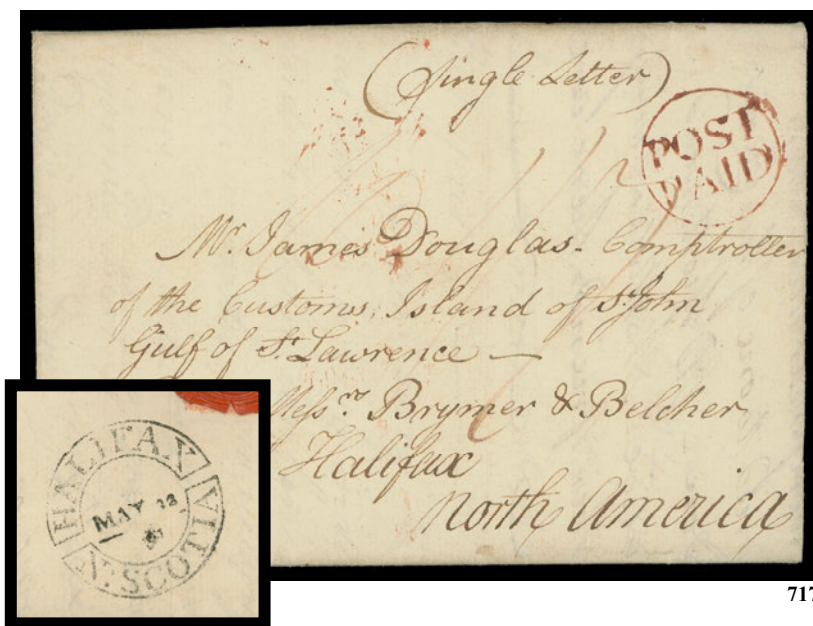 (Single Letter)
POST
PAID
Mr. James Douglas - Comptroller
of the Customs, Island of St. John
Gulf of St. Lawrence —
Messrs. Brymer & Belcher
Halifax
North America
HALIFAX
N: SCOTIA
MAY 12
717